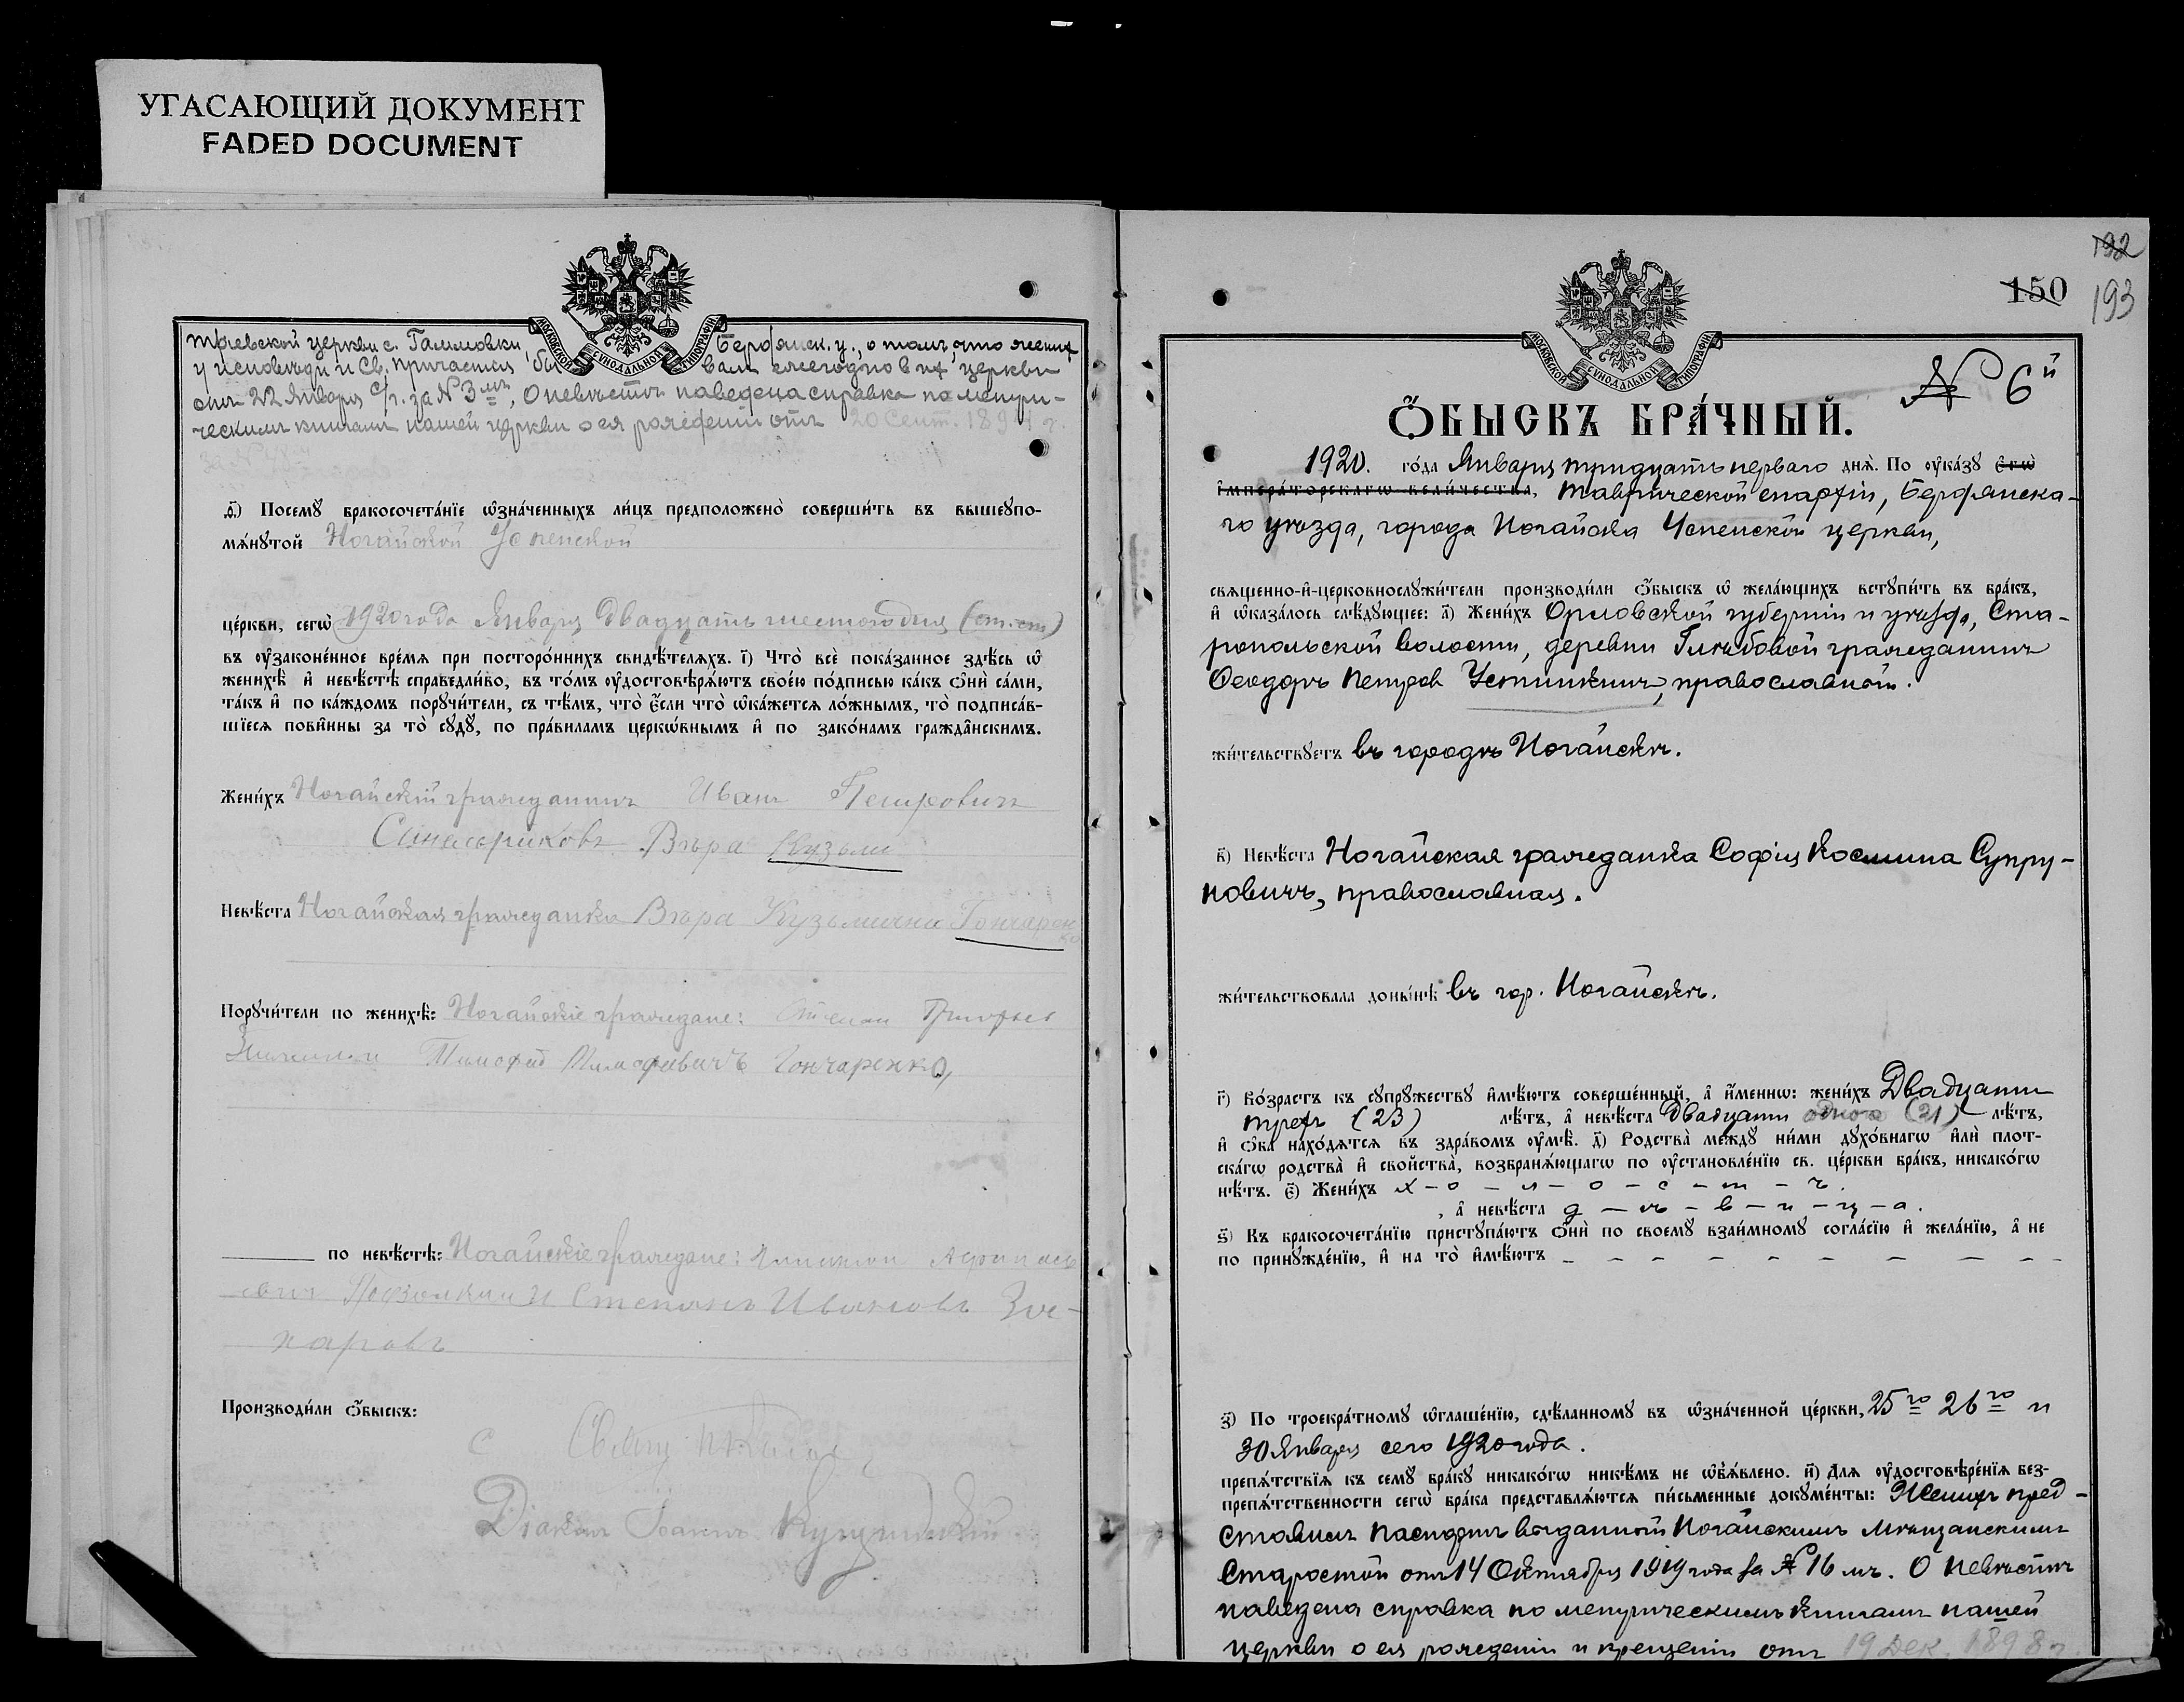 УГАСАЮЩИЙ ДОКУМЕНТ
FADED DOCUMENT
церкви с. Галиловки, Бердянск. у., о томъ, что женихъ
у исповѣди и Св. причастія бывалъ ежегодно в их церкви
отъ 22 Января с/г. за № 3мъ, О невѣстѣ наведена справка по метри-
ческимъ книгамъ нашей церкви о ея рожденіи отъ 20 Сент. 1894 г.
за №
МОСКОВСКОЙ СѴНОДАЛЬНОЙ ТИПОГРАФІИ
ѳ҃) Посемꙋ̀ бракосочета́нїе ѡ҆зна́ченныхъ ли́цъ предположено̀ соверши́ть въ вышеꙋпо-
мѧ́нꙋтой Ногайской Успенской
це́ркви, сегѡ̀ 1920 года Января Двадцать шестого дня (ст. ст.)
въ ᲂу҆законе́нное вре́мѧ при посторо́ннихъ свидѣ́телѧхъ. і҃) Что̀ всѐ пока́занное здѣ́сь ѡ҆
женихѣ̀ и҆ невѣ́стѣ справедли́во, въ то́мъ ᲂу҆достовѣрѧ́ютъ свое́ю по́дписью ка́къ ѻ҆нѝ са́ми,
та́къ и҆ по ка́ждомъ порꙋчи́тели, съ тѣ́мъ, что̀ є҆́сли что̀ ѡ҆ка́жетсѧ ло́жнымъ, то̀ подписа́в-
шїесѧ пови́нны за то̀ сꙋдꙋ̀, по пра́виламъ церкѡ́внымъ и҆ по зако́намъ гражда̑нскимъ.
Жени́хъ Ногайскій гражданинъ Иванъ Петровичъ
Вѣра Кузьми
Невѣ́ста Ногайская гражданка Вѣра Кузьминна Гончарен
ко
Порꙋчи́тели по женихѣ̀: Ногайскіе граждане:
Тимофей Тимофѣевичъ Гончаренко,
по невѣ́стѣ: Ногайскіе граждане:
и Степанъ Ивановъ За-
харовъ
Производи́ли ѻ҆́быскъ:
Діаконъ Іоаннъ
192
150 193
№ 6й
МОСКОВСКОЙ СѴНОДАЛЬНОЙ ТИПОГРАФІИ
Ѻ҆́БЫСКЪ БРА́ЧНЫЙ.
1920. го́да Января тридцать перваго днѧ̀. По ᲂу҆ка́зꙋ є҆гѡ̀
и҆мпера́торскагѡ вели́чества, Таврической епархіи, Бердянска-
го уѣзда, города Ногайска Успенской церкви,
свѧщенно-и҆-церковнослꙋжи́тели производи́ли ѻ҆́быскъ ѡ҆ жела́ющихъ встꙋпи́ть въ бра́къ,
и҆ ѡ҆каза́лось слѣ́дꙋющее: а҃) Жени́хъ Орловской губерніи и уѣзда, Ста-
ропольской волости, деревни Глѣбовой гражданинъ
Ѳеодоръ Петровъ Устинкинъ, православный.
жи́тельствꙋетъ въ городѣ Ногайскѣ.
в҃) Невѣ́ста Ногайская гражданка Софія Космина Супру-
новичъ, православная.
жи́тельствовала доны́нѣ въ гор. Ногайскѣ.
г҃) Во́зрастъ къ сꙋпрꙋ́жествꙋ и҆мѣ́ютъ соверше́нный, а҆ и҆́меннѡ: жени́хъ Двадцати
трехъ (23) лѣ́тъ, а҆ невѣ́ста Двадцати одного (21) лѣ́тъ,
и҆ ѻ҆́ба нахо́дѧтсѧ въ здра́вомъ ᲂу҆мѣ̀. д҃) Родства̀ междꙋ̀ ни́ми дꙋхо́внагѡ и҆лѝ плот-
ска́гѡ родства̀ и҆ свойства̀, возбранѧ́ющагѡ по ᲂу҆становле́нїю св. це́ркви бра́къ, никако́гѡ
нѣ́тъ. є҃) Жени́хъ х – о – л – о – с – т – ъ.
, а҆ невѣ́ста д – ѣ – в – и – ц – а.
ѕ҃) Къ бракосочета́нїю пристꙋпа́ютъ ѻ҆нѝ по своемꙋ̀ взаи́мномꙋ согла́сїю и҆ жела́нїю, а҆ не
по принꙋжде́нїю, и҆ на то̀ и҆мѣ́ютъ – – – – – – – – – –
з҃) По троекра́тномꙋ ѡ҆глаше́нїю, сдѣ́ланномꙋ въ ѡ҆зна́ченной це́ркви, 25го 26го и
30 Января сего 1920 года.
препѧ́тствїѧ къ семꙋ̀ бра́кꙋ никако́гѡ никѣ́мъ не ѡ҆б̾ѧ́влено. и҃) Для ᲂу҆достовѣре́нїѧ без-
препѧ́тственности сегѡ̀ бра́ка представлѧ́ютсѧ пи́сьменные докꙋме́нты: Женихъ пред-
ставилъ паспортъ выданный Ногайскимъ Мѣщанскимъ
Старостой отъ 14 Октября 1919 года за № 16 мъ. О невѣстѣ
наведена справка по метрическимъ книгамъ нашей
церкви о ея рожденіи и крещеніи отъ 19 Дек. 1898 г.